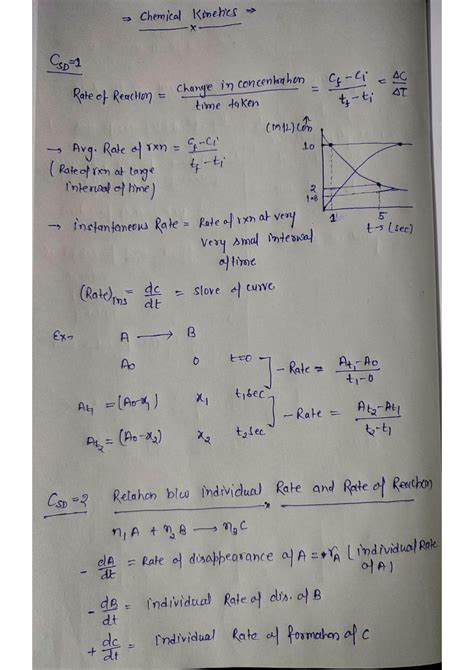 → Chemical Kinetics →
CSD=1
Rate of Reaction = Change in concentration / time taken = Cf-Ci / tf-ti = ΔC / ΔT
→ Avg. Rate of rxn = Cf-Ci / tf-ti
(Rate of rxn at large
interval of time)
(M/L) Con
10
2
1.8
1
5
t→(sec)
→ instantaneous Rate = Rate of rxn at very
very small interval
of time
(Rate)ins = dc/dt = slove of curve
Ex→ A → B
A0 0 t=0
- Rate = At1-A0 / t1-0
At1 = (A0-x1) x1 t1sec
- Rate = At2-At1 / t2-t1
At2 = (A0-x2) x2 t2sec
CSD=2 Relation b/w individual Rate and Rate of Reaction
n1A + n2B → n3C
- dA/dt = Rate of disappearance of A = rA (individual Rate
of A)
- dB/dt = individual Rate of dis. of B
+ dc/dt = individual Rate of formation of C